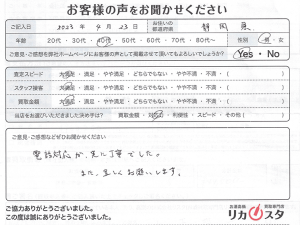 お客様の声をお聞かせください
ご記入日 2023年9月23日 お住いの都道府県 静岡県
年齢 20代・30代・40代・50代・60代・70代・80代～ 性別 男・女
ご意見・ご感想を弊社ホームページにお客様の声として掲載させて頂いてもよろしいでしょうか? Yes・No
査定スピード 大満足・満足・やや満足・どちらでもない・やや不満・不満・( )
スタッフ接客 大満足・満足・やや満足・どちらでもない・やや不満・不満・( )
買取金額 大満足・満足・やや満足・どちらでもない・やや不満・不満・( )
当店をお選びいただきました決め手は? 買取金額・対応・利便性・スピード・その他( )
ご意見・ご感想などぜひお聞かせください
電話対応が、先に丁寧でした。
また、宜しくお願いします。
ご協力ありがとうございました。
この度は誠にありがとうございました。
リカスタ